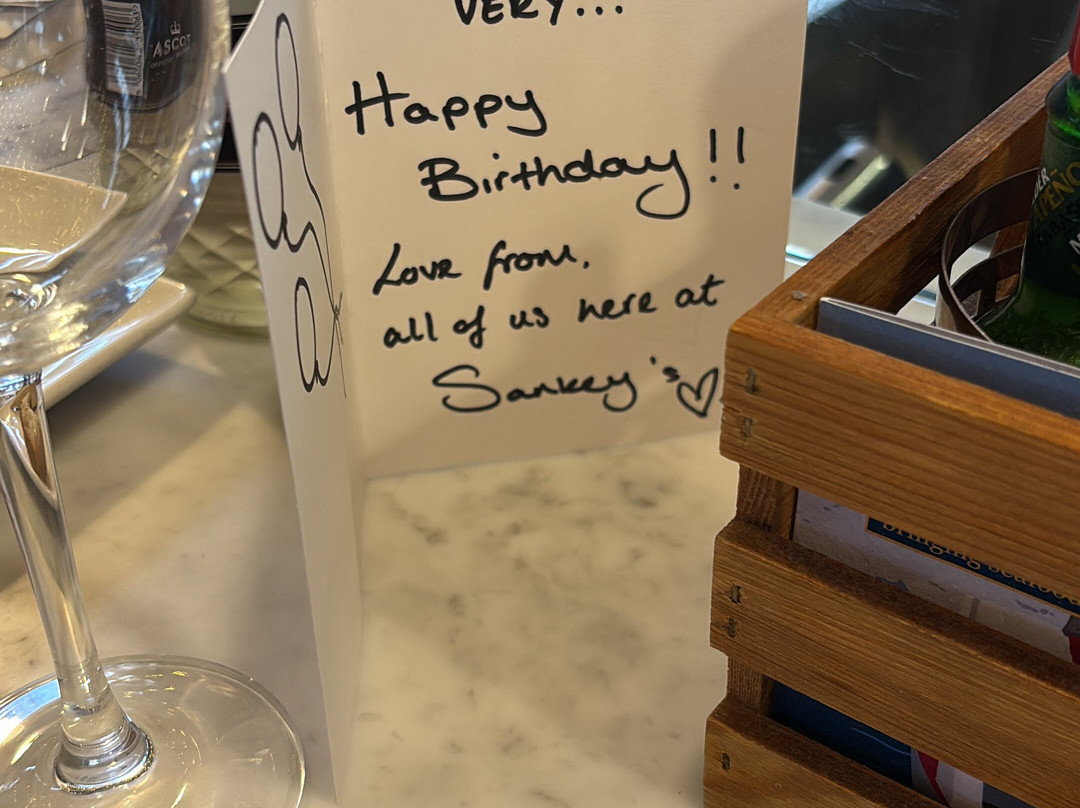 VERY...
Happy
Birthday!!
Love from,
all of us here at
Sankey's♡
ASCOT
bringing seafood